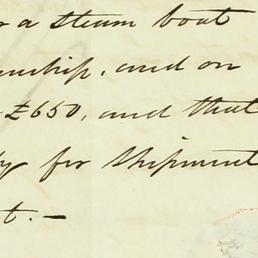 r a steam boat
nship, and on
£650, and that
y for shipment
t.—